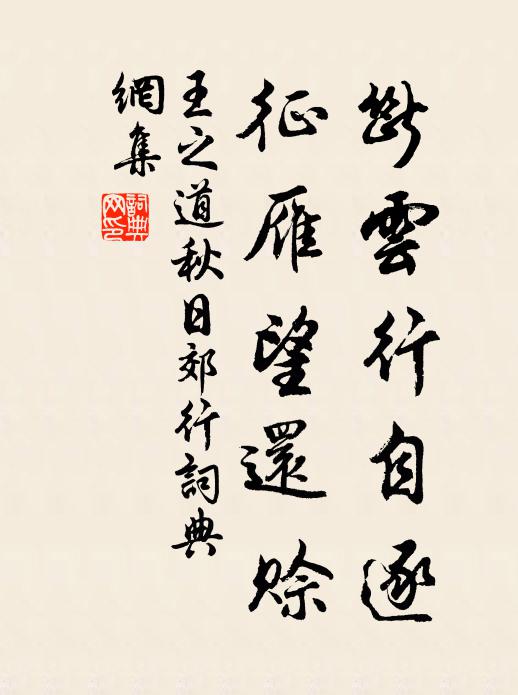 斷雲行自逐
征雁望還賒
王之道秋日郊行詞典
網集
詞典
网印